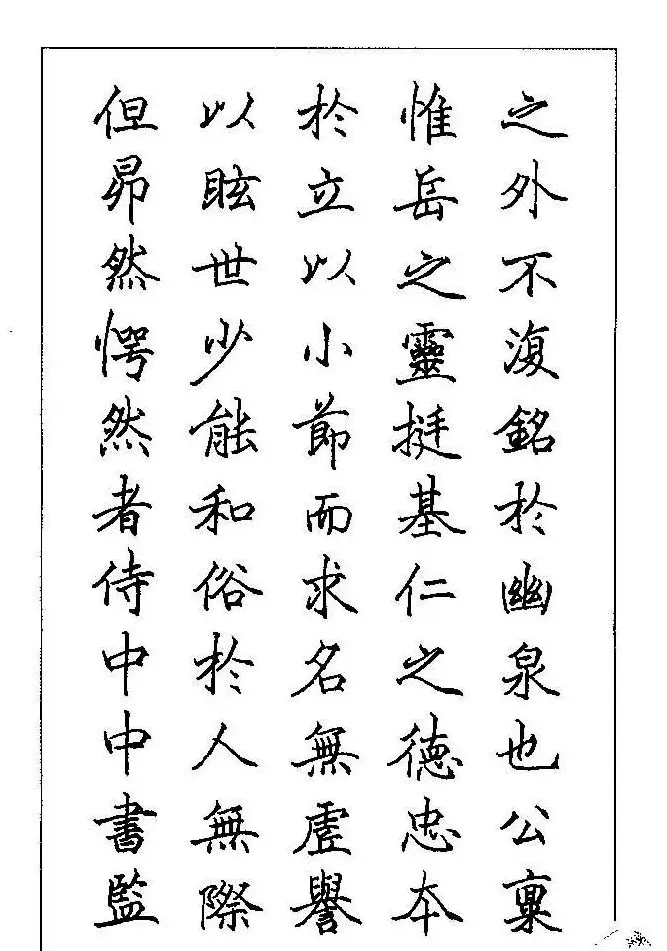 之外不復銘於幽泉也公稟
惟岳之靈挺基仁之德忠本
於立以小節而求名無虛譽
以眩世少能和俗於人無際
但昂然愕然者侍中中書監